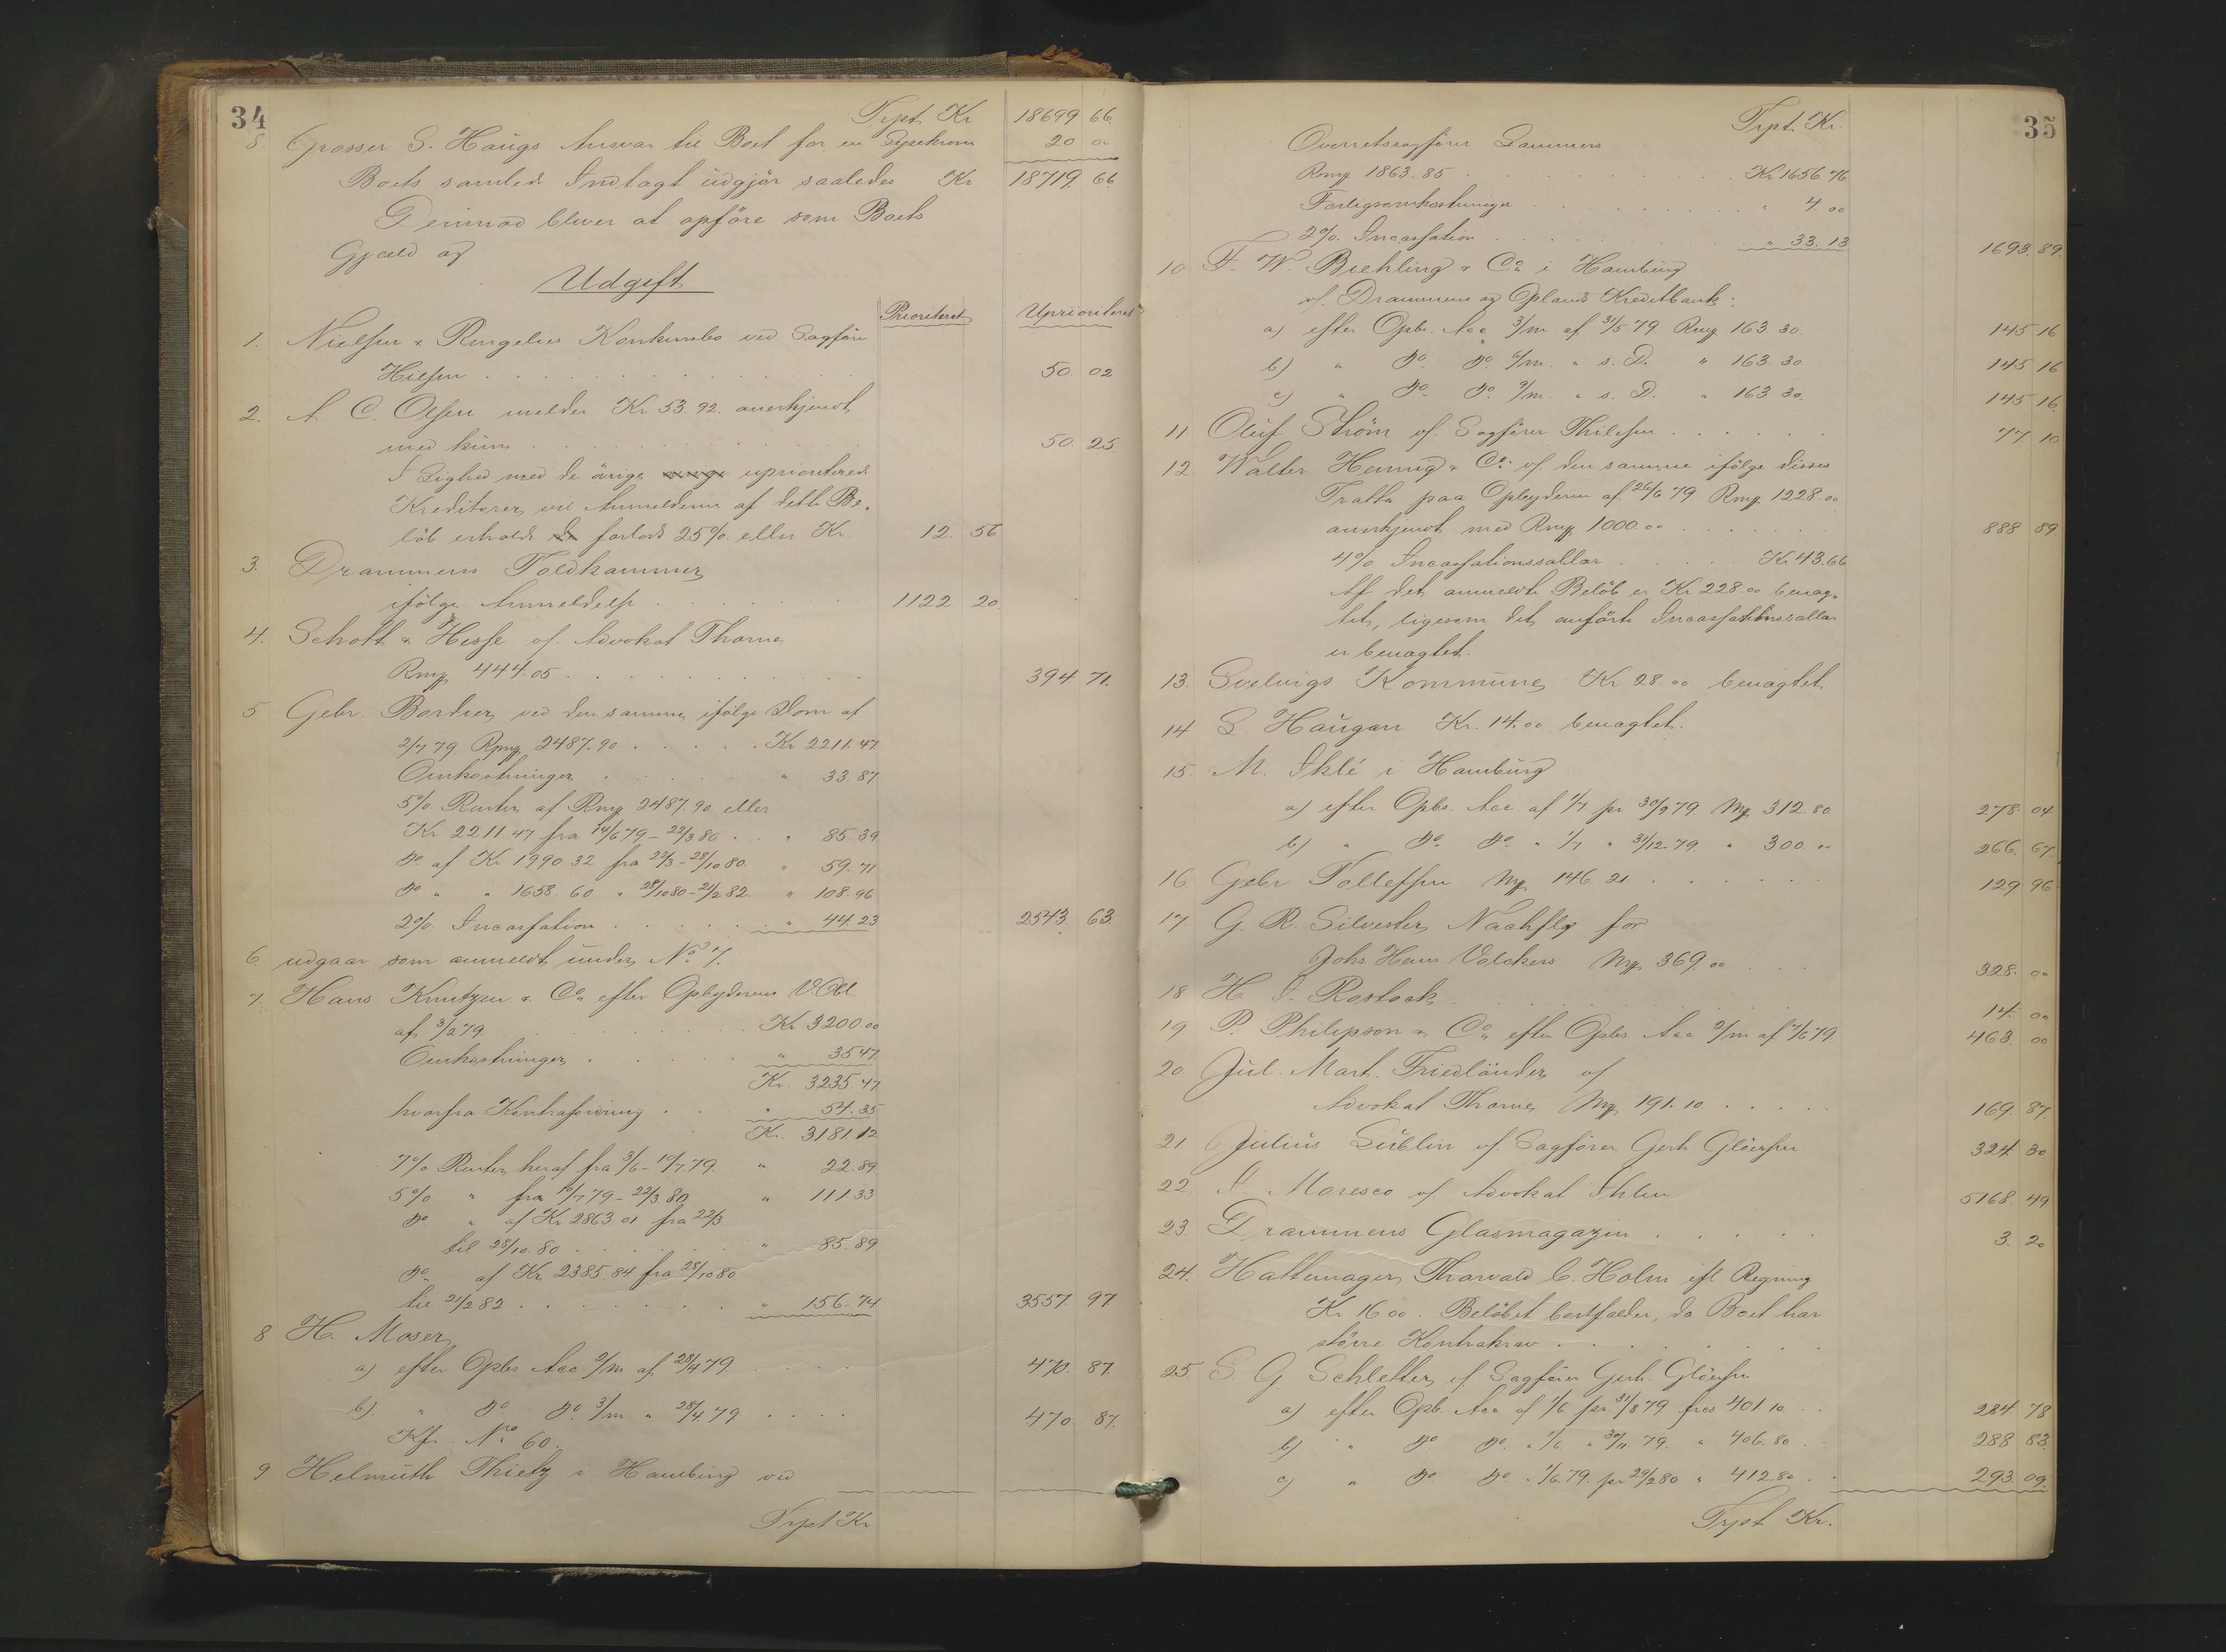 34
Trpt Kr 18699 66.
8 Grosser S. Haugs Ansvar til Boet for en 20 00
Boets samlede Indtægt udgjør saaledes Kr 18719. 66.
Derimod bliver at opføre som Boets
Gjæld og
Udgift
Prioriteret Uprioriteret
1. Nielsen & Rengelies Konkursbo ved Sagfører
Hielsen 50. 02
2. A. C. Olsen melder Kr 53.92. anerkjendt
med kun 50. 25
I Lighed med de övrige uprioriterede
Kreditorer vil Anmelderen af dette Be-
löb erholde forlods 25% eller Kr. 12. 56
3. Drammens Toldkammer
ifölge Anmeldelse 1122. 20.
4. Schott & Hesse v/ Advokat Thorne
Rmf 444.05 394. 71.
5 Gebr. Bordier ved den samme ifölge Dom af
2/7 79. Rmf. 2487.90 Kr 2211.47.
Omkostninger " 33.87
5% Renter af Rmf 2487.90 eller
Kr 2211 47 fra 14/6 79 - 22/3 80 " 85 39
do af Kr 1990 32 fra 22/3 - 28/10 80 " 59.71
do " " 1658.60 " 28/10 80 - 21/2 82 " 108.96
2% Incassation " 44.23 2543. 63.
6. udgaar som anmeldt under No 7.
7. Hans Knutzen & Co efter Opbyderens VObl
af 3/2 79 Kr 3200.00
Omkostninger " 35 47
Kr. 3235 47
hvorfra Kontrafordring " 54.35
Kr. 3181.12
7% Renter heraf fra 3/6 - 10/7 79. " 22.89
5% " fra 10/7 79 - 22/3 80 " 111.33
do " af Kr 2863 01 fra 22/3
til 28/10 80 " 85.89
do af Kr 2385.84 fra 28/10 80
til 21/2 82 " 156.74 3557. 97
8 H. Moser
a) efter Opbs Acc 9/m af 28/4 79 470. 87.
b) " do do 3/m " 28/4 79 470. 87.
Kfr. No 60.
9 Helmuth Thietz i Hamburg ved
Trpt Kr
35
Trpt. Kr.
Overretssagförer Lammers
Rmf 1863.85 Kr 1656.76
Forligsomkostninger " 4 00
2% Incassation " 33.13 1693. 89.
10 F. W. Biehling & Co i Hamburg
v/ Drammens og Oplands Kreditbank:
a) efter Opbs. Acc 3/m af 31/5 79 Rmf 163 30. 145 16
b) " do do 6/m. " s. D. " 163.30 145 16
c) " do do 9/m. " s. D. " 163 30. 145 16.
11 Oluf Ström v/ Sagförer Thilesen 77 10
12. Walter Hennig & Co v/ den samme ifölge disses
Tratta paa Opbyderen af 26/6 79 Rmf. 1228.00
anerkjendt med Rmf 1000.00 888 89
4% Incassationssallær Kr 43.66
Af det anmeldte Belöb er Kr 228.00 benæg-
tet, ligesom det anførte Incassationssallær
er benægtet.
13. Svelvigs Kommune Kr 28.00 benægtet
14 S. Haugan Kr. 14.00 benægtet.
15. M. Iklé i Hamburg
a) efter Opbs. Acc af 1/7 pr 30/9 79 Mf 312.80 278. 04
b) " do do " 1/7 " 31/12 79. " 300.00 266. 67.
16. Gebr Tollefsen Mf 146 21 129 96
17 G. R. Silvester Nachflg for
Johs Herm. Volckers Mf 369.00 328. 00
18 H. I. Rostock 14. 00
19. P. Philipson & Co efter Opbs Acc 9/m af 7/6 79 463. 00
20. Jul. Mart. Friedländer v/
Advokat Thorne Mf 191.10 169. 87.
21 Julius Lublin v/ Sagförer Gerh. Glöersen 324. 30
22. I. Moresco v/ Advokat Ihlen 5168. 49
23. Drammens Glasmagazin 3. 20
24. Hattemager Thorvald C. Holm ifl Regning
Kr 16 00. Belöbet bortfalder, da Boet har
större Kontrakrav
25. S. G. Schletter v/ Sagförer Gerh. Glöersen
a) efter Opb. Acc af 1/6 pr 31/8 79 frcs 401 10 284 78
b) " do do " 1/6 " 30/11 79. " 406.80 288 83.
c) " do do " 1/6 79. pr 29/2 80 " 412.80 293. 09.
Trpt. Kr.